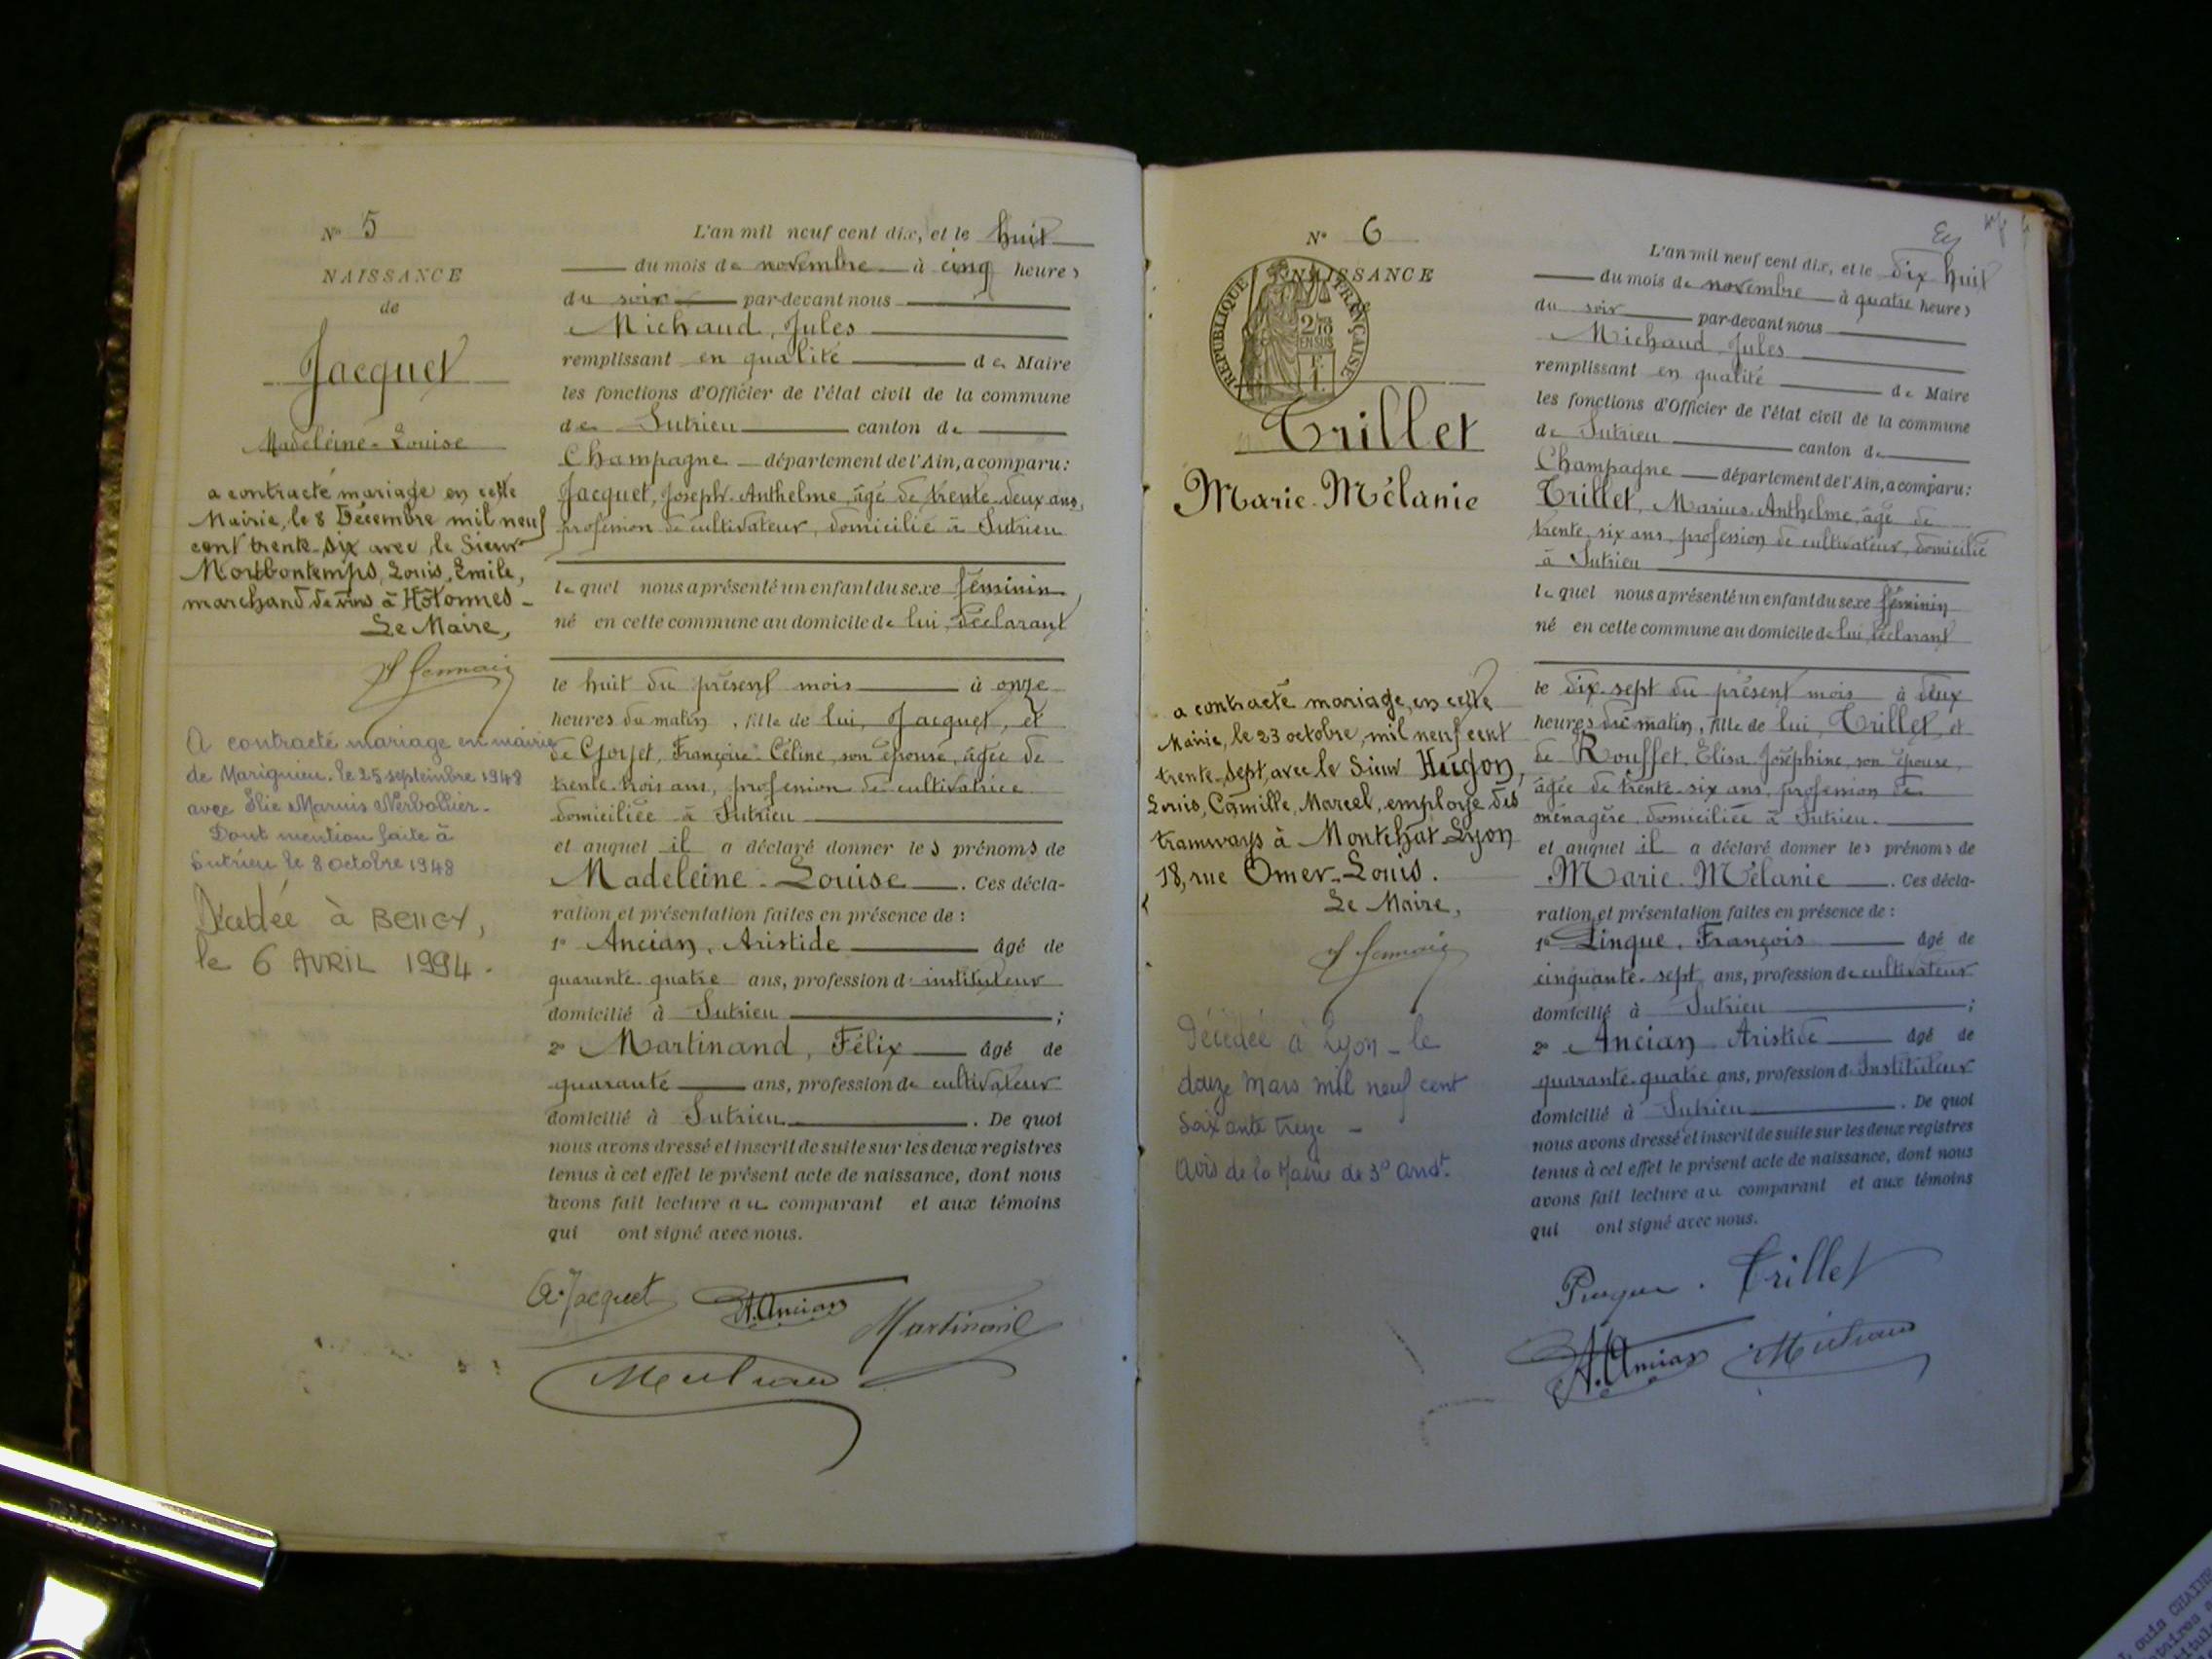 N° 5
NAISSANCE
de
Jacquet
Madeleine-Louise
a contracté mariage en cette
Mairie, le 8 Décembre mil neuf
cent trente-six avec le Sieur
Montbontemps, Louis, Emile,
marchand de vins à Hotonnes -
Le Maire,
A contracté mariage en mairie
de Marignieu. le 25 septembre 1948
avec Elie Marius
Dont mention faite à
Sutrieu le 8 octobre 1948
Décédée à BELLEY,
le 6 AVRIL 1994.
L'an mil neuf cent dix, et le huit
du mois de novembre à cinq heures
du soir par-devant nous
Michaud, Jules
remplissant en qualité de Maire
les fonctions d'Officier de l'état civil de la commune
de Sutrieu canton de
Champagne département de l'Ain, a comparu :
Jacquet, Joseph-Anthelme, âgé de trente-deux ans,
profession de cultivateur, domicilié à Sutrieu
lequel nous a présenté un enfant du sexe féminin,
né en cette commune au domicile de lui, déclarant
le huit du présent mois à onze
heures du matin, fille de lui, Jacquet, et
de Gorjet, Françoise-Céline, son épouse, âgée de
trente-trois ans, profession de cultivatrice
domiciliée à Sutrieu
et auquel il a déclaré donner les prénoms de
Madeleine-Louise. Ces décla-
ration et présentation faites en présence de :
1° Ancian, Aristide âgé de
quarante-quatre ans, profession d'instituteur
domicilié à Sutrieu ;
2° Martinand, Félix âgé de
quarante ans, profession de cultivateur
domicilié à Sutrieu. De quoi
nous avons dressé et inscrit de suite sur les deux registres
tenus à cet effet le présent acte de naissance, dont nous
avons fait lecture au comparant et aux témoins
qui ont signé avec nous.
A. Jacquet A. Ancian Martinand
Michaud
N° 6
NAISSANCE
RÉPUBLIQUE FRANÇAISE
2/10
EN SUS
Trillet
Marie-Mélanie
a contracté mariage, en cette
Mairie, le 23 octobre, mil neuf cent
trente-sept, avec le Sieur Hugon,
Louis, Camille, Marcel, employé des
tramways à Montchat-Lyon
18, rue Omer-Louis.
Le Maire,
Décédée à Lyon - le
douze Mars mil neuf cent
soixante treize -
avis de la Mairie de 3e arrdt.
L'an mil neuf cent dix, et le dix-huit
du mois de novembre à quatre heures
du soir par-devant nous
Michaud, Jules
remplissant en qualité de Maire
les fonctions d'Officier de l'état civil de la commune
de Sutrieu canton de
Champagne département de l'Ain, a comparu :
Trillet, Marius-Anthelme, âgé de
trente-six ans, profession de cultivateur, domicilié
à Sutrieu
lequel nous a présenté un enfant du sexe féminin
né en cette commune au domicile de lui, déclarant
le dix-sept du présent mois à deux
heures du matin, fille de lui, Trillet, et
de Rouffet, Elisa Joséphine, son épouse,
âgée de trente-six ans, profession de
ménagère, domiciliée à Sutrieu.
et auquel il a déclaré donner les prénoms de
Marie-Mélanie. Ces décla-
ration et présentation faites en présence de :
1° Pinque, François âgé de
cinquante-sept ans, profession de cultivateur
domicilié à Sutrieu ;
2° Ancian Aristide âgé de
quarante-quatre ans, profession d'Instituteur
domicilié à Sutrieu. De quoi
nous avons dressé et inscrit de suite sur les deux registres
tenus à cet effet le présent acte de naissance, dont nous
avons fait lecture au comparant et aux témoins
qui ont signé avec nous.
Trillet
A. Ancian Michaud